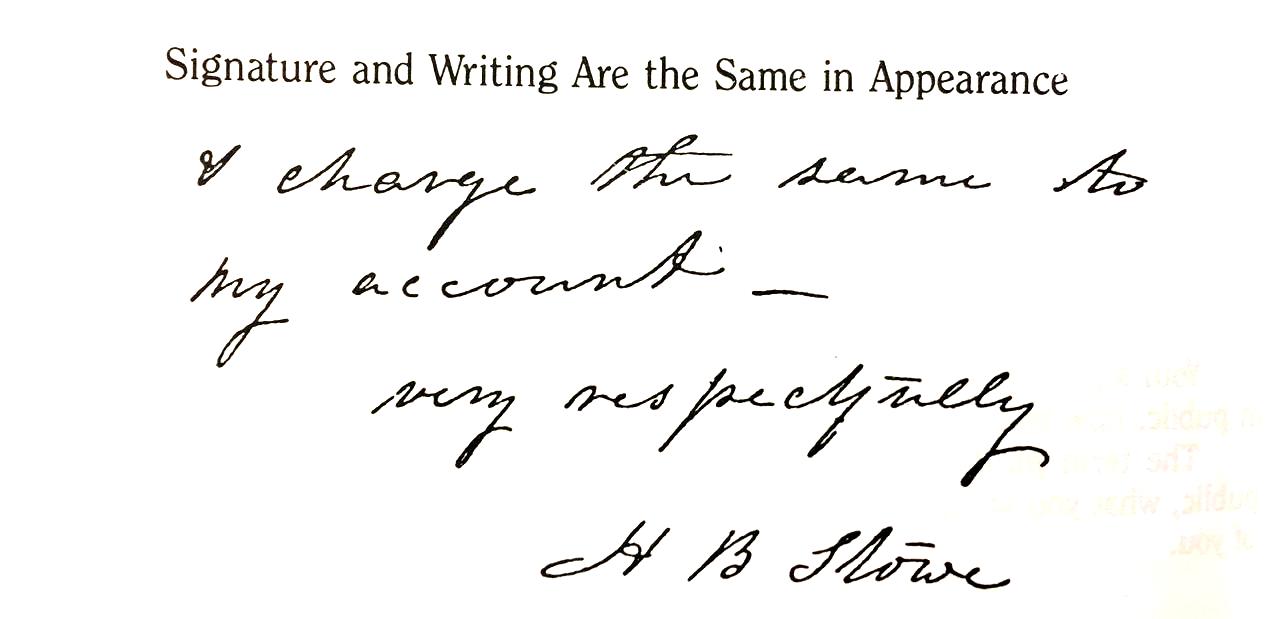 Signature and Writing Are the Same in Appearance
& charge the same to
my account —
very respectfully
H B Stowe